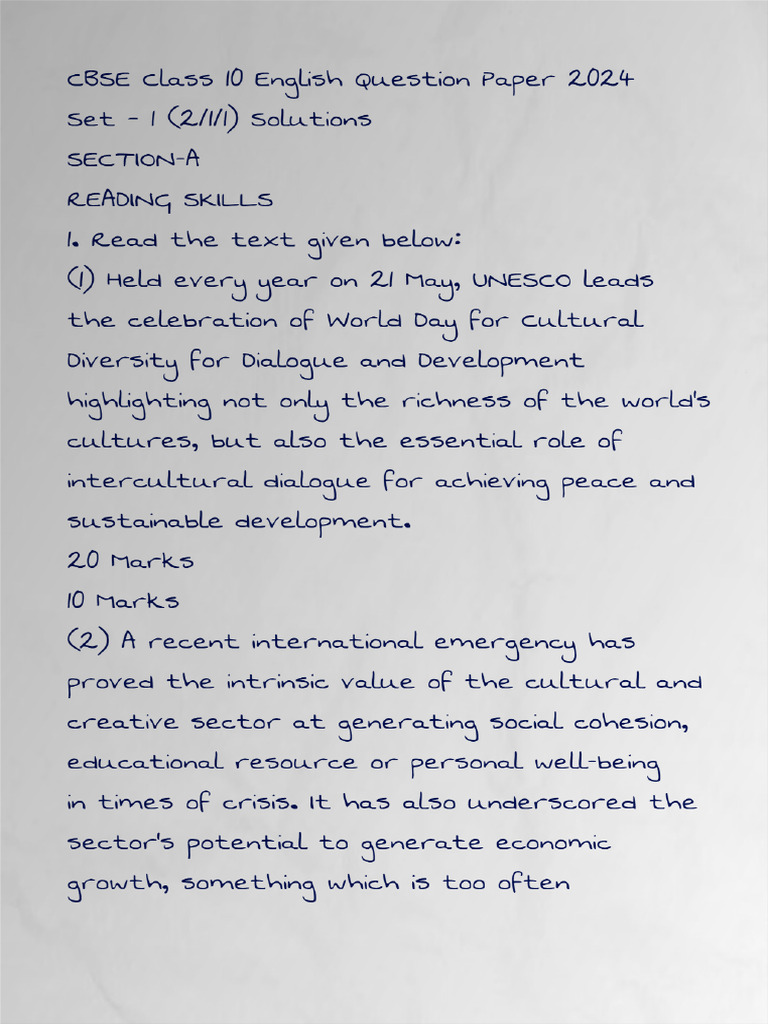 CBSE Class 10 English Question Paper 2024
Set - 1 (2/1/1) Solutions
SECTION-A
READING SKILLS
1. Read the text given below:
(1) Held every year on 21 May, UNESCO leads
the celebration of World Day for Cultural
Diversity for Dialogue and Development
highlighting not only the richness of the world's
cultures, but also the essential role of
intercultural dialogue for achieving peace and
sustainable development.
20 Marks
10 Marks
(2) A recent international emergency has
proved the intrinsic value of the cultural and
creative sector at generating social cohesion,
educational resource or personal well-being
in times of crisis. It has also underscored the
sector's potential to generate economic
growth, something which is too often